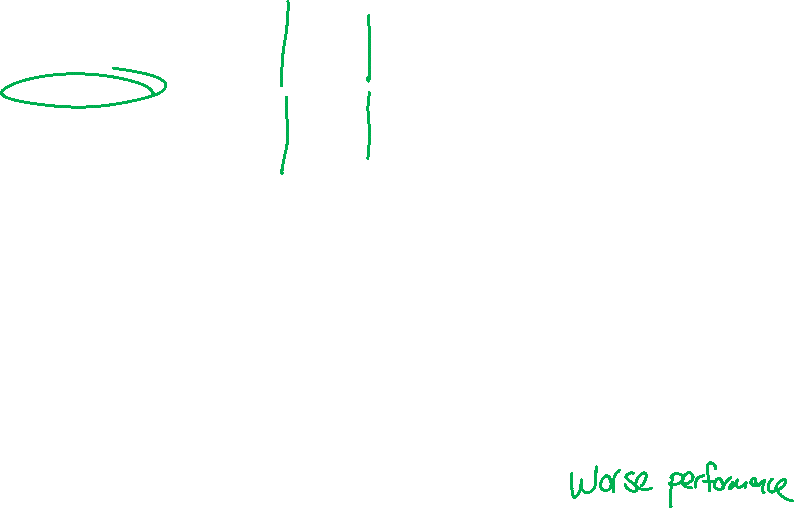 Worse performance